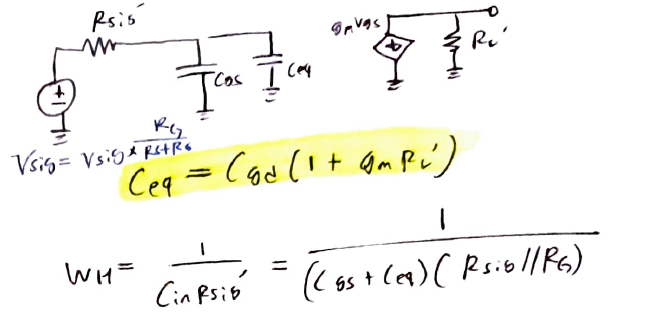 Rsig'
gmVgs
RL'
Cgs
Ceq
Vsig = Vsig * RG / RS+RG
Ceq = Cgd (1 + gm RL')
WH = 1 / Cin Rsig' = 1 / (Cgs + Ceq) ( Rsig // RG)